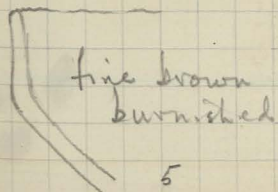 fine brown
burnished
5